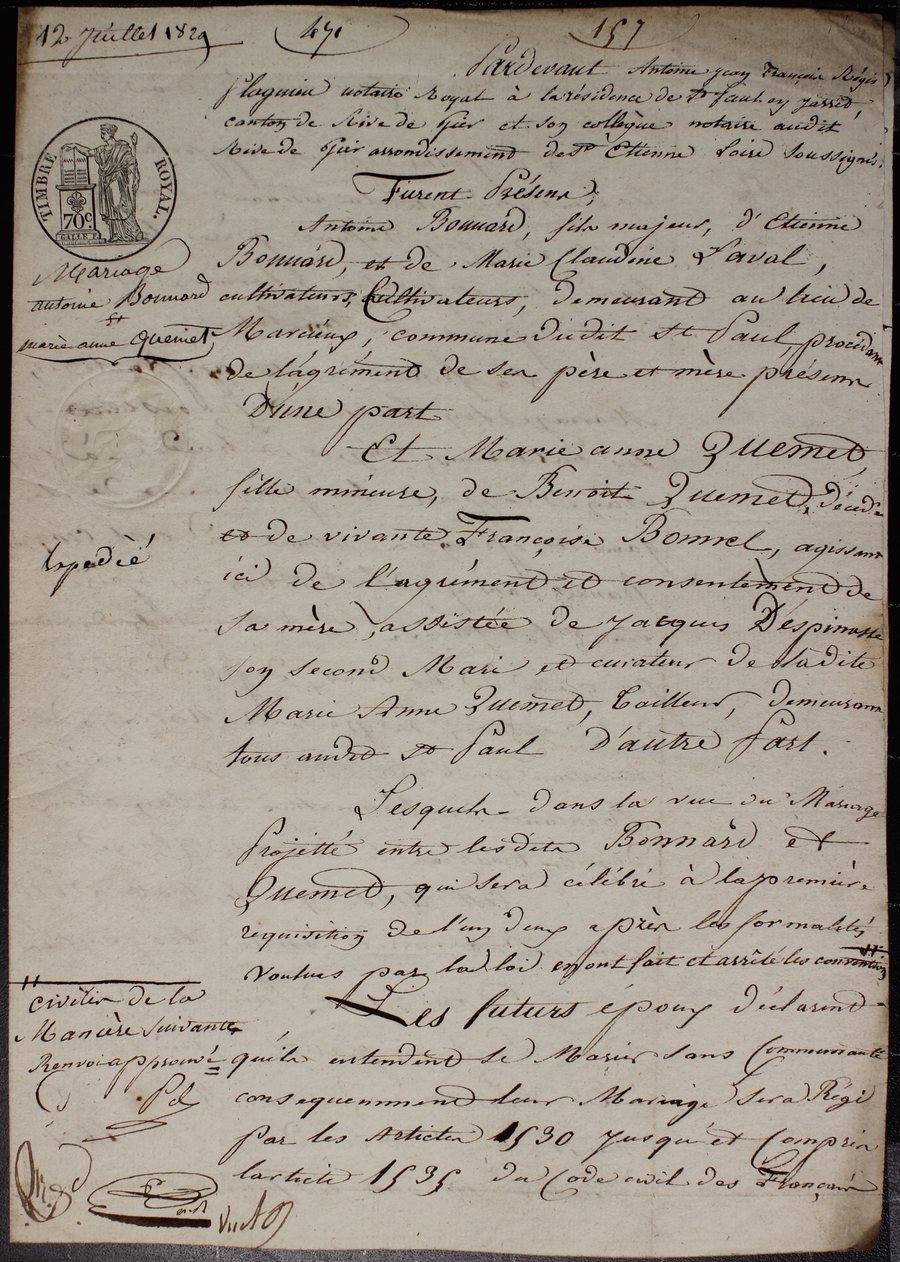 12 Juillet 1829
471
157
Pardevant Antoine Jean François Régis
notaire Royal à la résidence de St Paul en Jarret,
canton de Rive de Gier et son collègue notaire audit
Rive de Gier arrondissement de St Etienne Loire soussignés.
Furent Présens,
TIMBRE ROYAL.
70c.
Mariage
antoine Bonnard
et
marie anne Quemet
Antoine Bonnard, fils majeur, d'Etienne
Bonnard, et de Marie Claudine Laval,
cultivateurs, Cultivateurs, demeurant au lieu de
commune dudit St Paul, procédant
de l'agrément de ses père et mère présens
D'une part
Et Marie anne Quemet,
fille mineure, de Benoit Quemet, décédé
et de vivante Françoise Bonnel, agissant
ici de l'agrément et consentèment de
sa mère, assistée de Jacques Despinasse
son second Mari et curateur de ladite
Marie Anne Quemet, tailleur, demeurant
tous audit St Paul D'autre Part.
Expedié
Lesquels dans la vue du Mariage
Projetté entre lesdits Bonnard et
Quemet, qui sera célébré à la première
requisition de l'un deux après les formalités
voulues par la loi en ont fait et arrêté les conventions
civiles de la
Manière suivante
Renvoi approuvé
Les futurs époux déclarent
qu'ils entendent se Marier sans Communauté
consequemment leur Mariage sera Régi
par les Articles 1530 jusqu'et Compris
l'article 1535 du Code civil des Français